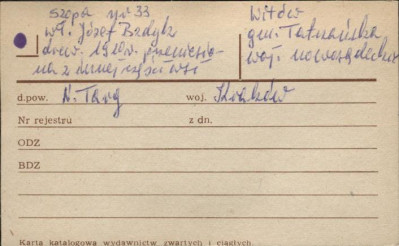 szopa nr 33
wł. Józef Bzdyk
drew. 1920 r. przeniesio-
na z innej części wsi
Witów
gm. Tatrzańska
woj. nowosądeckie
d.pow. N. Targ woj. Kraków
Nr rejestru z dn.
ODZ
BDZ
Karta katalogowa wydawnictw zwartych i ciągłych.